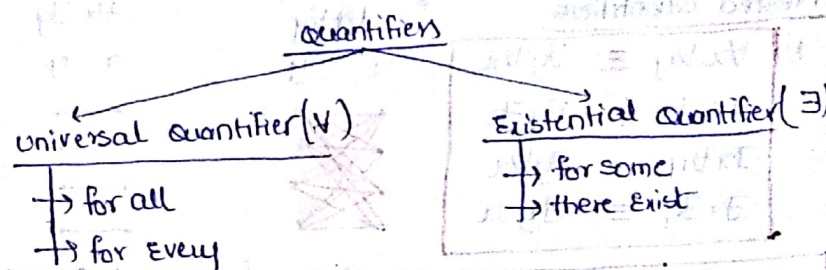 Quantifiers
Universal Quantifier(∀)
→ for all
→ for Every
Existential Quantifier(∃)
→ for some
→ there Exist